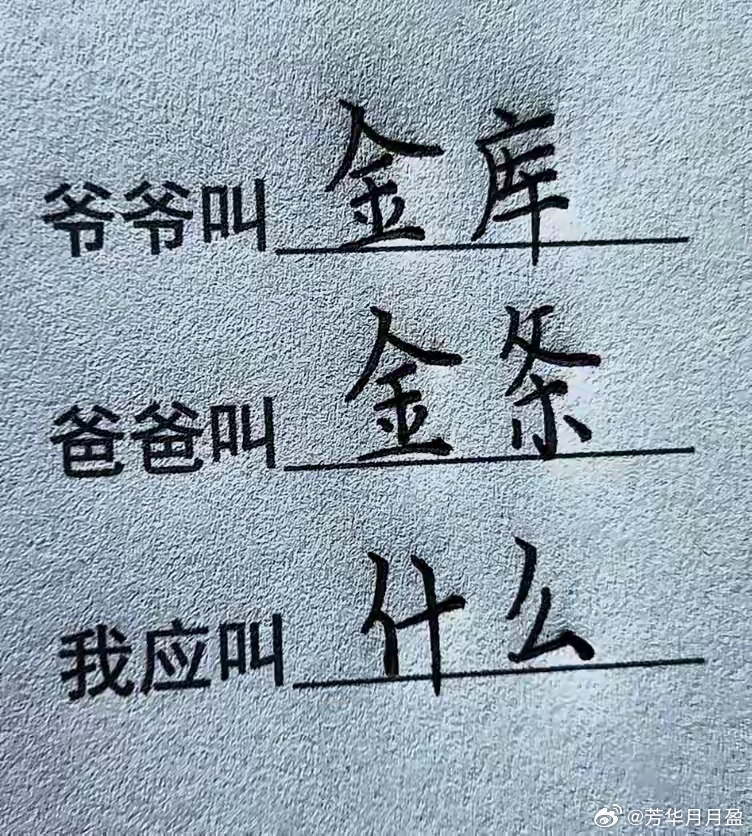 爷爷叫金库
爸爸叫金条
我应叫什么
@芳华月月盈